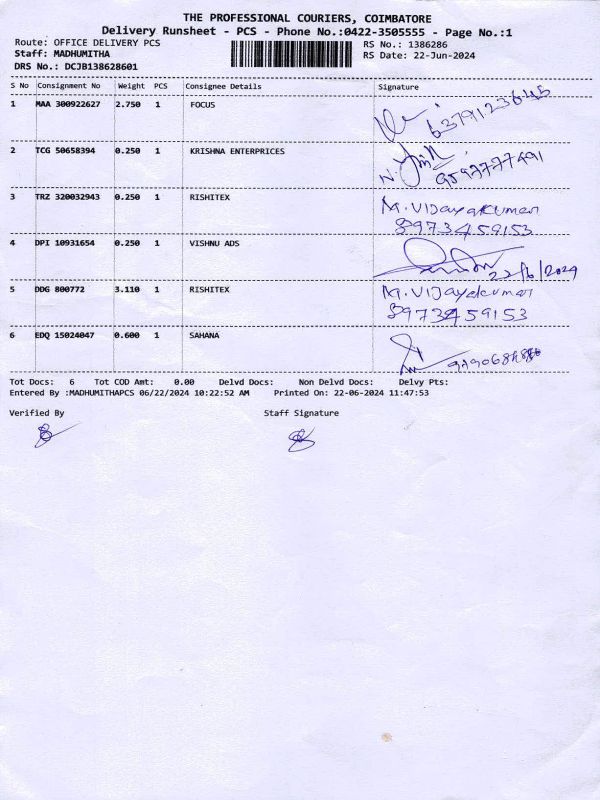 THE PROFESSIONAL COURIERS, COIMBATORE
Delivery Runsheet - PCS - Phone No.:0422-3505555 - Page No.:1
Route: OFFICE DELIVERY PCS RS No.: 1386286
Staff: MADHUMITHA RS Date: 22-Jun-2024
DRS No.: DCJB138628601
S No Consignment No Weight PCS Consignee Details Signature
1 MAA 300922627 2.750 1 FOCUS 6379123645
2 TCG 50658394 0.250 1 KRISHNA ENTERPRICES 9597777491
3 TRZ 320032943 0.250 1 RISHITEX M. VIJayakumar
8973459153
4 DPI 10931654 0.250 1 VISHNU ADS 22/6/2024
5 DDG 800772 3.110 1 RISHITEX M. VIJayakumar
8973459153
6 EDQ 15024047 0.600 1 SAHANA
Tot Docs: 6 Tot COD Amt: 0.00 Delvd Docs: Non Delvd Docs: Delvy Pts:
Entered By :MADHUMITHAPCS 06/22/2024 10:22:52 AM Printed On: 22-06-2024 11:47:53
Verified By Staff Signature